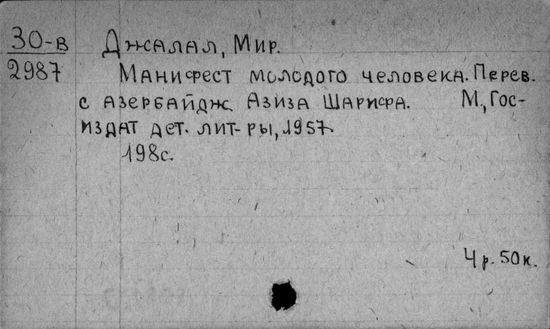 30-в Джалал, Мир.
2987 Манифест молодого человека. Перев.
с азербайдж. Азиза Шарифа. М., Гос-
издат дет. лит-ры, 1957.
198с.
4 р. 50к.